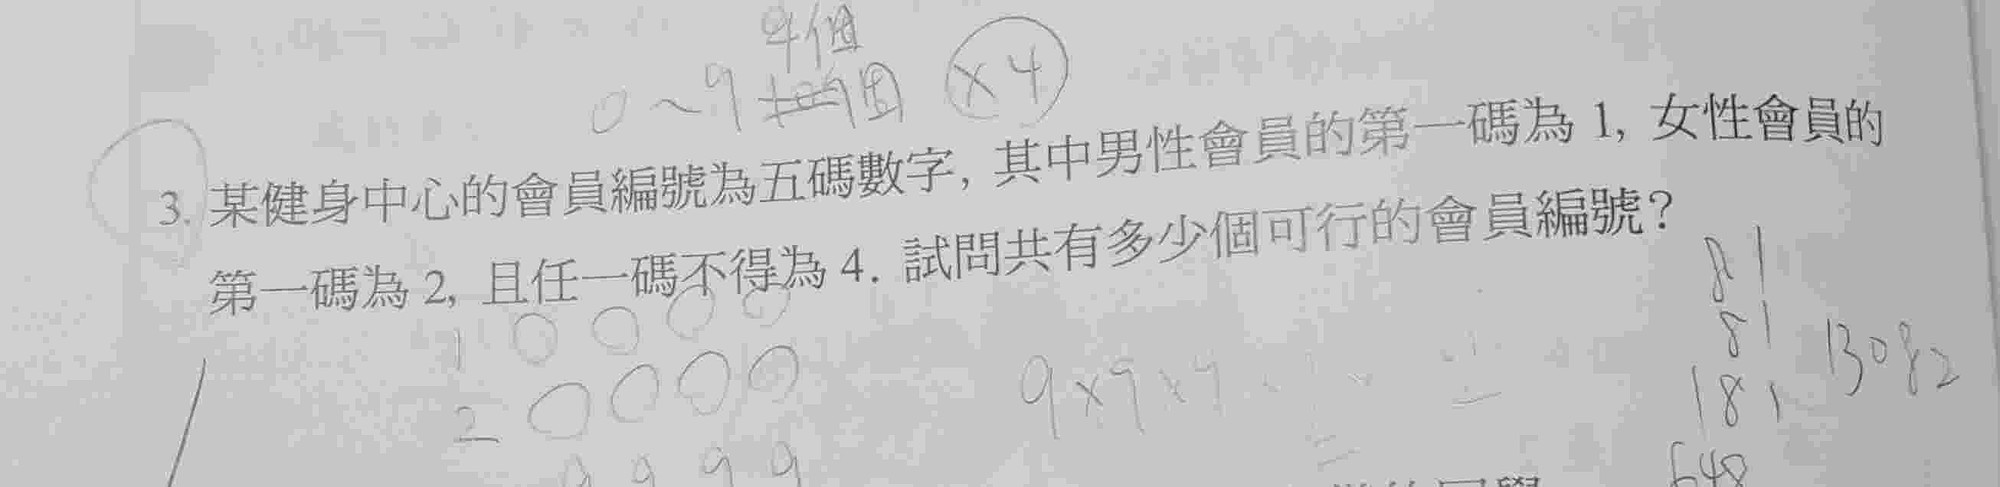 4個
0～9 ×4
3. 某健身中心的會員編號為五碼數字, 其中男性會員的第一碼為 1, 女性會員的
第一碼為 2, 且任一碼不得為 4. 試問共有多少個可行的會員編號?
1 0 0 0 0
2 0 0 0 0
9 9 9 9
9×9×9
81
81
181
648
13082